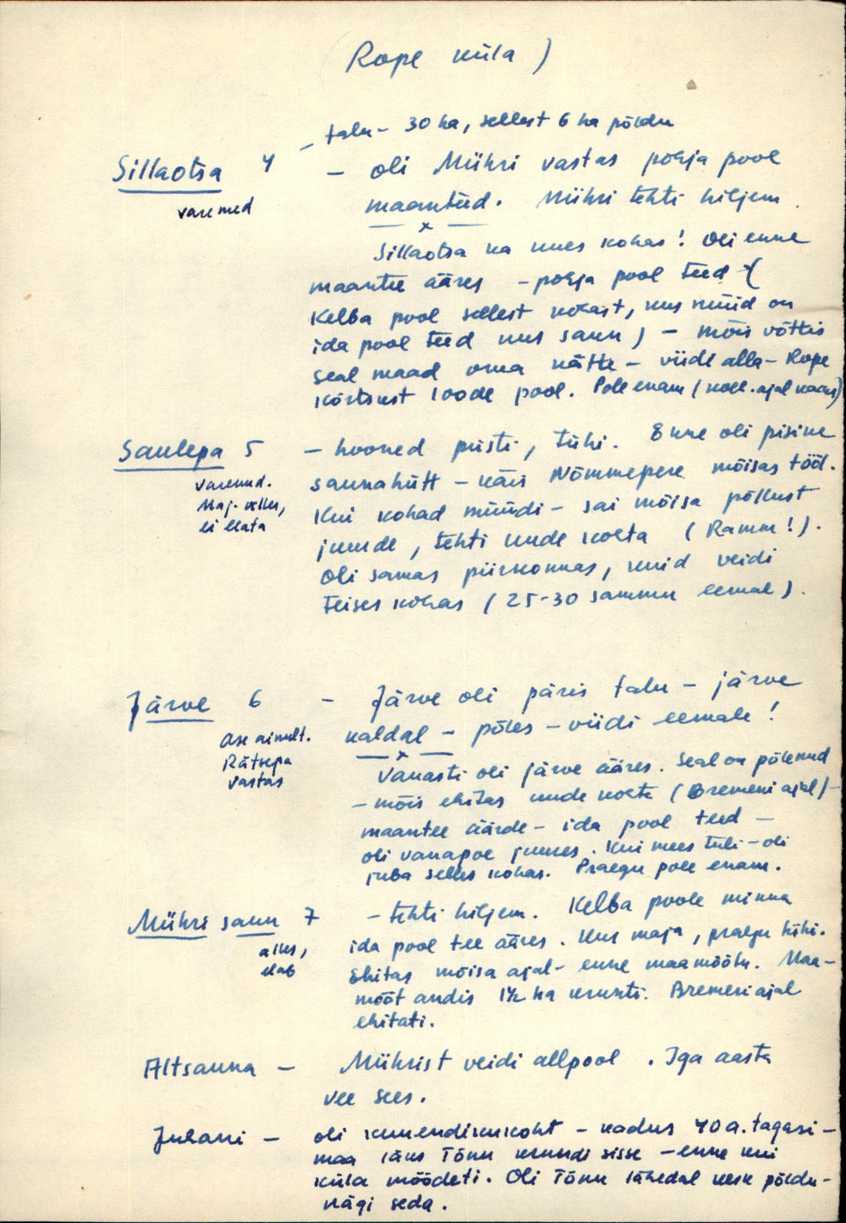 (Rope küla)
– talu – 30 ha, sellest 6 ha põldu
Sillaotsa 4 – oli Mühri vastas põhja pool
varemed maanteed. Mühri tehti hiljem.
– x –
Sillaotsa ka uues kohas! Oli enne
maantee ääres – põhja pool teed – (
Kelba pool sellest kohast, kus nüüd on
ida pool teed uus saun) – mõis võttis
seal maad oma kätte – viidi alla – Rope
kõrtsust loode pool. Pole enam (kolh. ajal kadus)
Saulepa 5 – hooned püsti, tühi. Enne oli pisike
varemed. saunahütt – käis Nõmmepere mõisas tööl.
Maj. alles, Kui kohad müüdi – sai mõisa põllust
ei elata juurde, tehti uude kohta (Ramm!).
Oli samas piirkonnas, kuid veidi
teises kohas (25-30 sammu eemal).
Järve 6 – Järve oli päris talu – järve
Ase ainult. kaldal – põles – viidi eemale!
– x –
Rätsepa Vanasti oli järve ääres. Seal on põlenud
vastas – mõis ehitas uude kohta (Bremeni ajal) –
maantee äärde – ida pool teed –
oli vanapoe juures. Kui mees tuli – oli
juba selles kohas. Praegu pole enam.
Mühri saun 7 – tehti hiljem. Kelba poole minna
alles, ida pool tee ääres. Uus maja, praegu tühi.
elab Ehitas mõisa ajal – enne maamõõtu. Maa-
mõõt andis 1½ ha krunti. Bremeni ajal
ehitati.
Altsauna – Mührist veidi allpool. Iga aasta
vee sees.
Juhani – oli kümendikukoht – kadus 40 a. tagasi –
maa läks Tõnu krundi sisse – enne kui
küla mõõdeti. Oli Tõnu lähedal kesk põldu –
nägi seda.